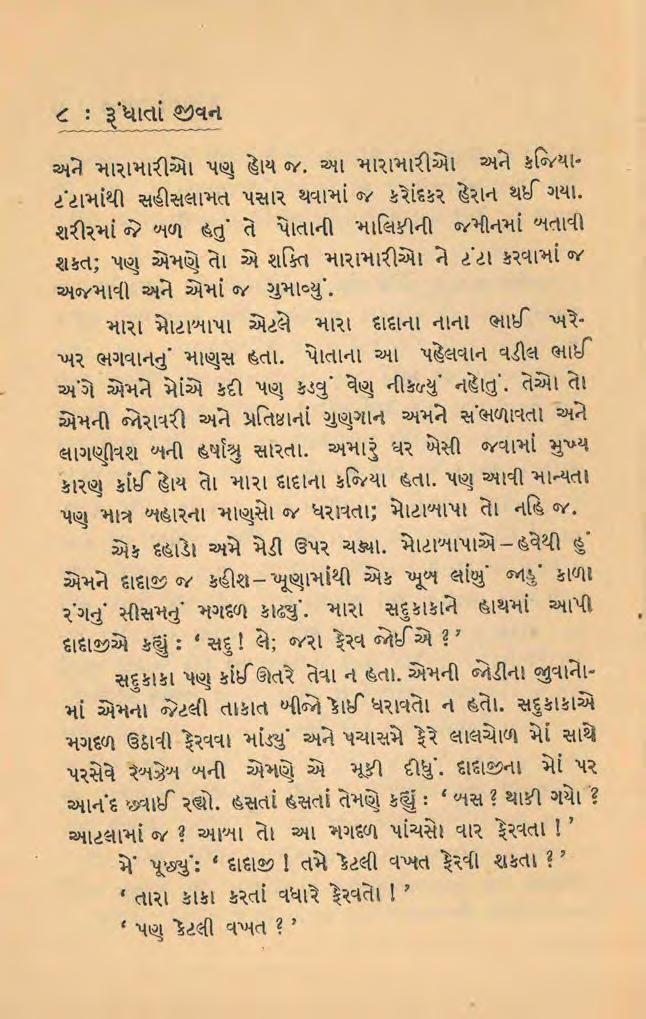 ૮ : રૂંધાતાં જીવન
અને મારામારીઓ પણ હોય જ. આ મારામારીઓ અને કજિયા-
ટંટામાંથી સહીસલામત પસાર થવામાં જ કરોંદકર હેરાન થઈ ગયા.
શરીરમાં જે બળ હતું તે પોતાની માલિકીની જમીનમાં બતાવી
શકત; પણ એમણે તો એ શક્તિ મારામારીઓ ને ટંટા કરવામાં જ
અજમાવી અને એમાં જ ગુમાવ્યું.
મારા મોટાબાપા એટલે મારા દાદાના નાના ભાઈ ખરે-
ખર ભગવાનનું માણસ હતા. પોતાના આ પહેલવાન વડીલ ભાઈ
અંગે એમને મોંએ કદી પણ કડવું વેણ નીકળ્યું નહોતું. તેઓ તો
એમની જોરાવરી અને પ્રતિષ્ઠાનાં ગુણગાન અમને સંભળાવતા અને
લાગણીવશ બની હર્ષાશ્રુ સારતા. અમારું ઘર બેસી જવામાં મુખ્ય
કારણ કાંઈ હોય તો મારા દાદાના કજિયા હતા. પણ આવી માન્યતા
પણ માત્ર બહારના માણસો જ ધરાવતા; મોટાબાપા તો નહિ જ.
એક દહાડો અમે મેડી ઉપર ચડ્યા. મોટાબાપાએ – હવેથી હું
એમને દાદાજી જ કહીશ – ખૂણામાંથી એક ખૂબ લાંબું જાડું કાળા
રંગનું સીસમનું મગદળ કાઢ્યું. મારા સદુકાકાને હાથમાં આપી
દાદાજીએ કહ્યું : ‘ સદુ ! લે; જરા ફેરવ જોઈએ ? ’
સદુકાકા પણ કાંઈ ઊતરે તેવા ન હતા. એમની જોડીના જીવાનો-
માં એમના જેટલી તાકાત બીજો કોઈ ધરાવતો ન હતો. સદુકાકાએ
મગદળ ઉઠાવી ફેરવવા માંડ્યું અને પચાસમે ફેરે લાલચોળ મોં સાથે
પરસેવે રેબઝેબ બની એમણે એ મૂકી દીધું. દાદાજીના મોં પર
આનંદ છવાઈ રહ્યો. હસતાં હસતાં તેમણે કહ્યું : ‘ બસ ? થાકી ગયો ?
આટલામાં જ ? આબા તો આ મગદળ પાંચસો વાર ફેરવતા ! ’
મેં પૂછ્યું : ‘ દાદાજી ! તમે કેટલી વખત ફેરવી શકતા ? ’
‘ તારા કાકા કરતાં વધારે ફેરવતો ! ’
‘ પણ કેટલી વખત ? ’